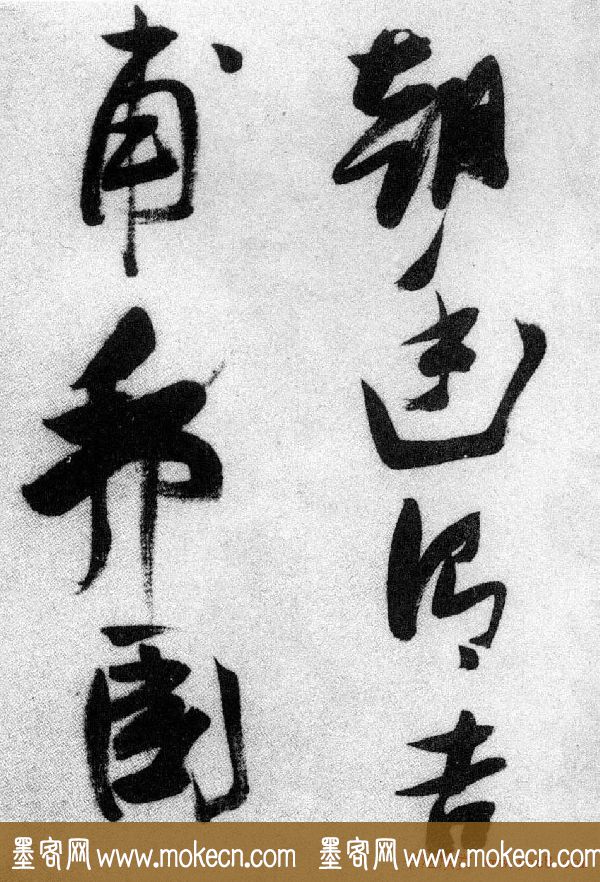 朝廷得吉
甫邦國
墨客网 www.mokecn.com 墨客网 www.mokecn.com